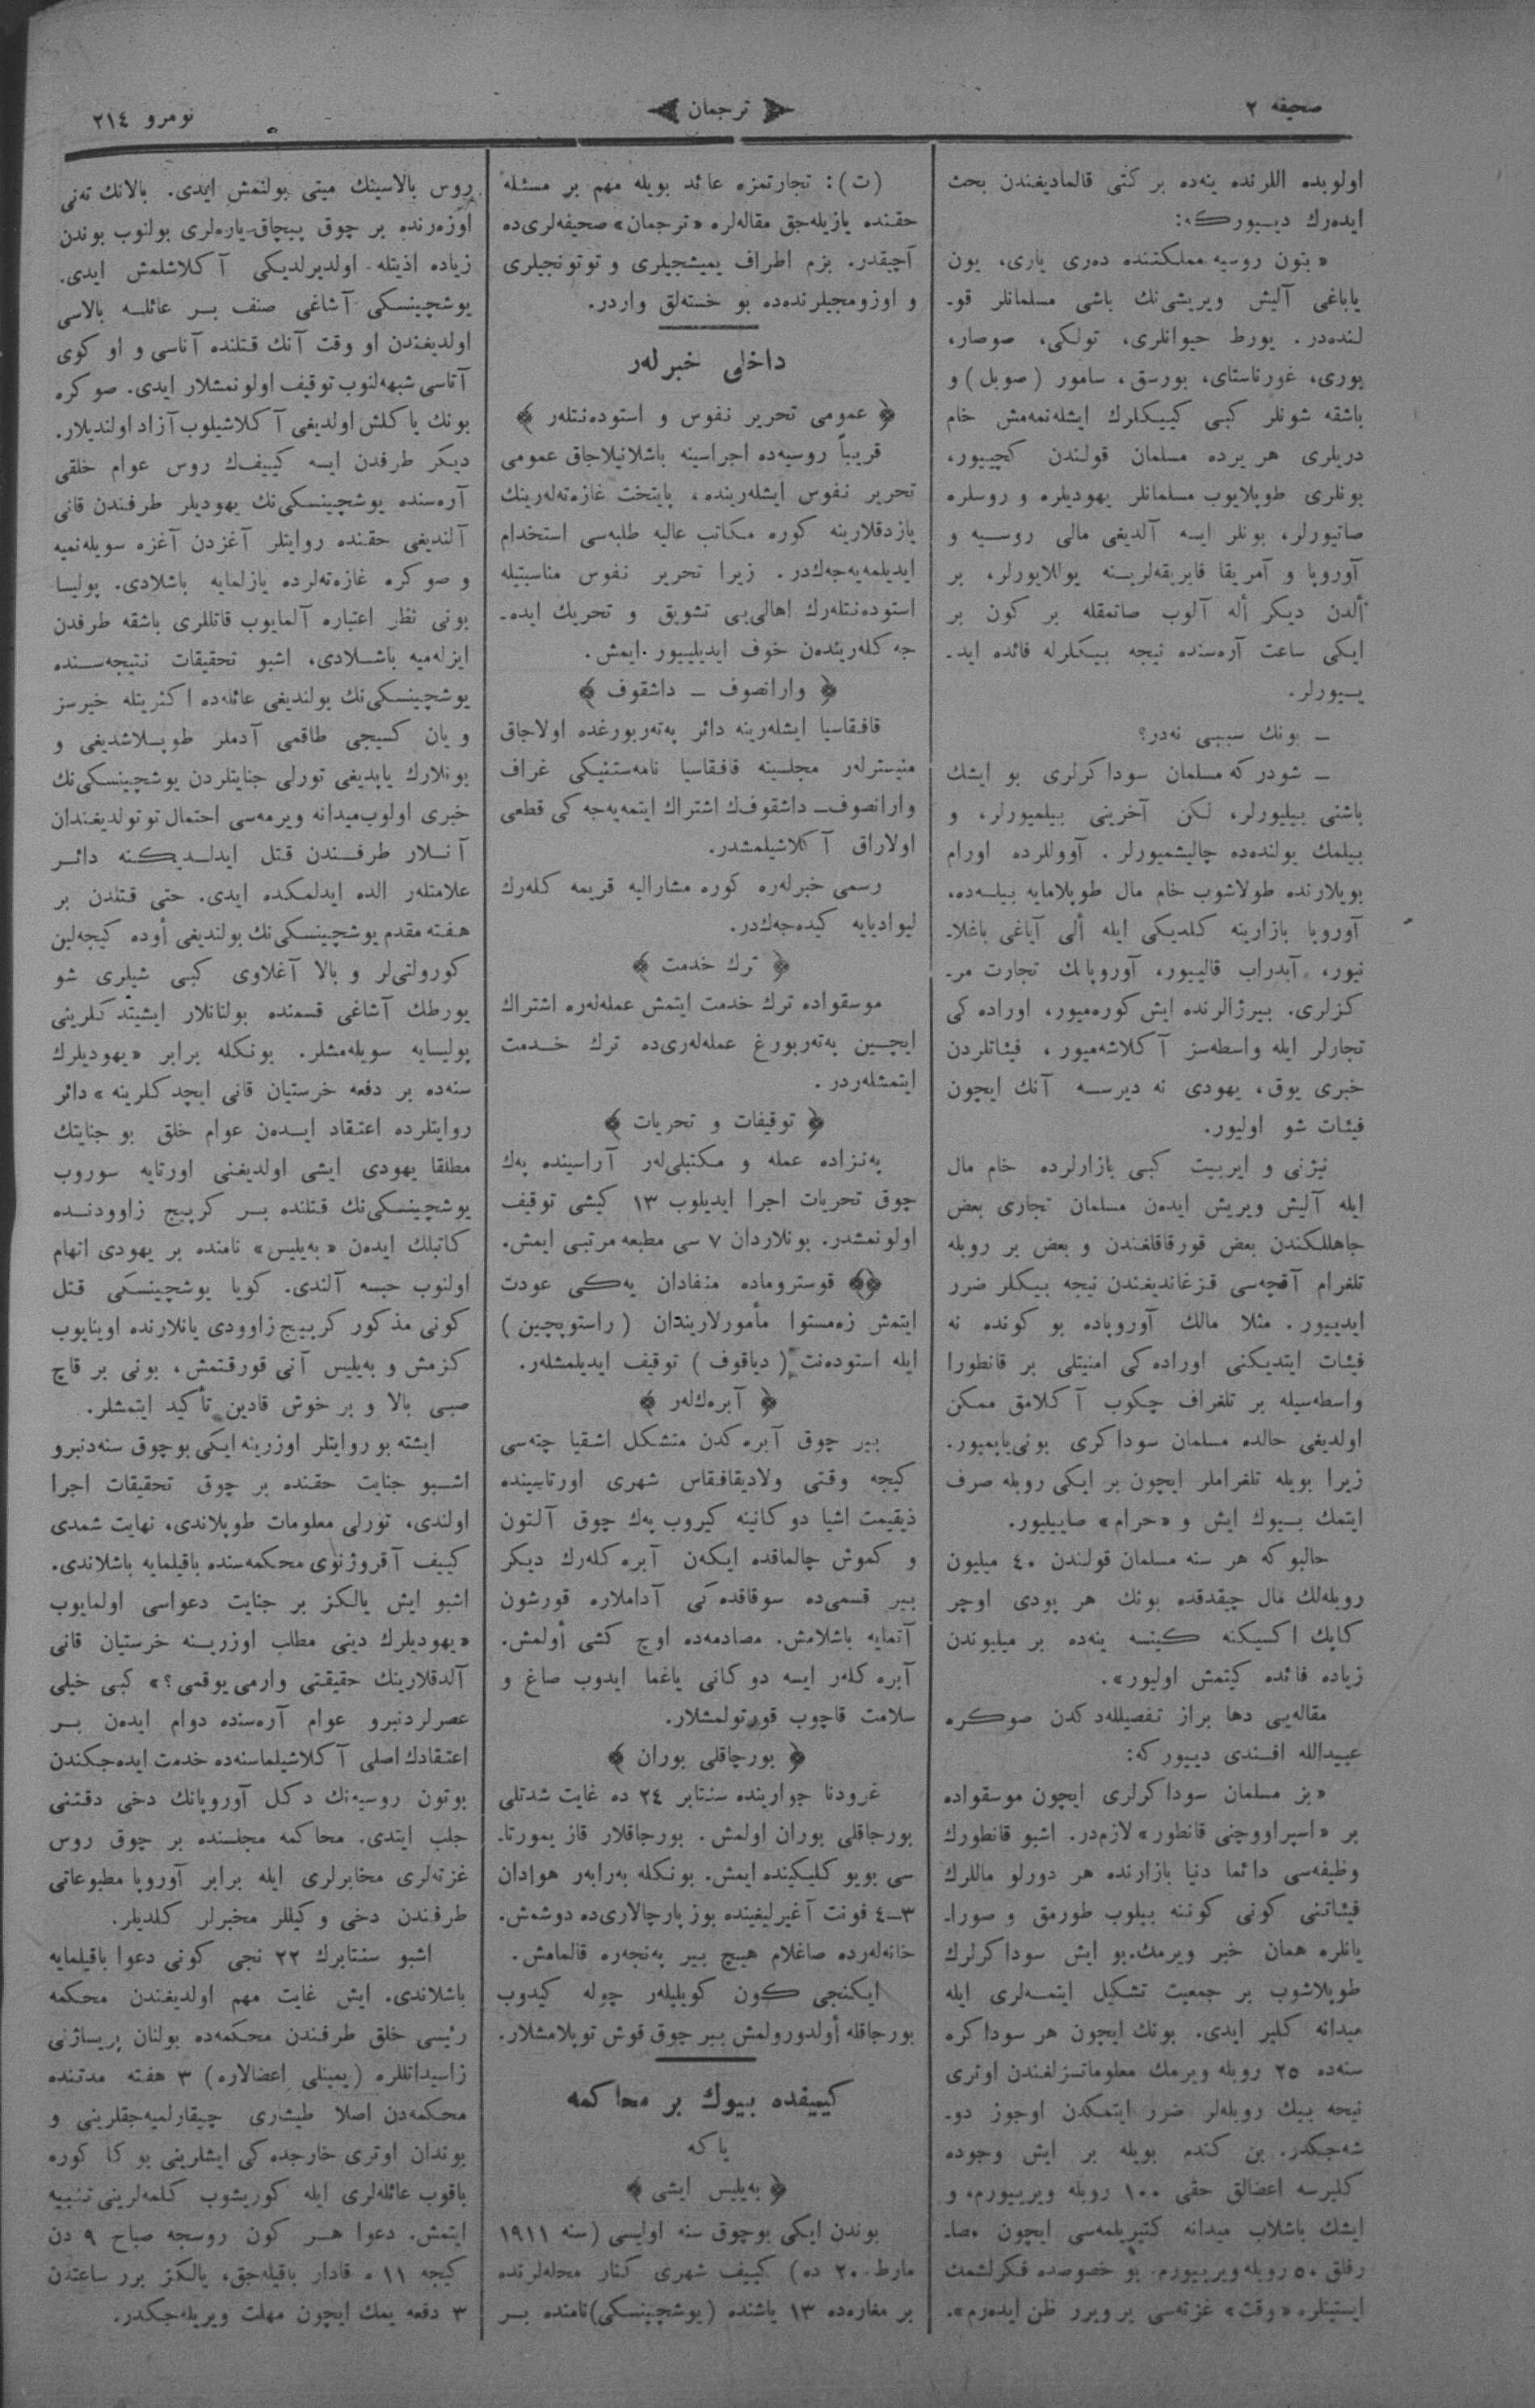 صحیفه ٢
ترجمان
نومرو ٢١٤
اولویده اللرنده ینه‌ده بر كتی قالمادیغندن بحث
ایده‌رك دیـیورکه:
«بتون روسیه مملكتنده ده‌ری یاری، یون
یاباغی آلیش ویریشی‌نك باشی مسلمانلر قو-
لنده‌در. یورط حیوانلری، تولكی، صوصار،
بوری، غورناستای، بورسق، سامور (صوبل) و
باشقه شونلر كبی كییكلرك ایشله‌نمه‌مش خام
دریلری هر یرده مسلمان قولندن كچییور،
بونلری طوپلایوب مسلمانلر یهودیلره و روسلره
صاتیورلر، بونلر ایسه آلدیغی مالی روسـیه و
آوروپا و آمریقا فابریقه‌لریـنه یوللایورلر، بر
ألدن دیكر أله آلوب صاتمقله بر كون بر
ایكی ساعت آره‌سنده نیجه بیـكلرله فائده ایدـ
یـیورلر.
— بونك سببی نه‌در؟
— شودركه مسلمان سوداكرلری بو ایشك
باشنی بیلیورلر، لكن آخرینی بیلمیورلر، و
بیلمك یولنده‌ده چالیشمیورلر. آووللرده اورام
بویلارنده طولاشوب خام مال طوپلامایه بیلـه‌ده،
آوروپا بازارینه كلدیكی ایله ألی آیاغی باغلاـ
نیور، آیدراب قالییور، آوروپانك تجارت مرـ
كزلری. بیرژالرنده ایش كوره‌میور، اوراده كی
تجارلر ایله واسطه‌سز آكلاشه‌میور، فیئاتلردن
خبری یوق، یهودی نه دیرســه آنك ایچون
فیئات شو اولیور.
نیژنی و ایربیت كبی بازارلرده خام مال
ایله آلیش ویریش ایده‌ن مسلمان تجاری بعض
جاهللكندن بعض قورقاقلغندن و بعض بر روبله
تلغرام آقچه‌سی قـزغاندیغندن نیجه بیـكلر ضرر
ایدییور. مثلا مالك آوروپاده بو كونده نه
فیئات ایتدیكنی اوراده كی امنیتلی بر قانطورا
واسطه‌سیله بر تلغراف چكوب آكلامق ممكن
اولدیغی حالده مسلمان سوداكری بونی‌یاپمیور.
زیرا بویله تلغراملر ایچون بر ایكی روبله صرف
ایتمك بـیوك ایش و «حرام» صاییلیور.
حالبوكه هر سنه مسلمان قولندن ٤٠ میلیون
روبله‌لك مال چیقدقده بونك هر پودی اوچر
كاپك اكسیكنه كیتسه ینه‌ده بر میلیوندن
زیاده فائده كیتمش اولیور».
مقاله‌یی دها براز تفصیللەدكدن صوكره
عبیدالله افـندی دییوركه:
«بز مسلمان سوداكرلری ایچون موسقواده
بر «اسپراووچنی قانطور» لازم‌در. اشبو قانطورك
وظیفه‌سی دائما دنیا بازارنده هر دورلو ماللرك
فیئاتنی كونی كوننه بیلوب طورمق و صوراـ
یانلره همان خبر ویرمك. بو ایش سوداكرلرك
طوپلاشوب بر جمعیت تشكیل ایتمـه‌لری ایله
میدانه كلیر ایدی. بونك ایچون هر سوداكره
سنه‌ده ٢٥ روبله ویرمك معلوماتسزلغندن اوتری
نیجه بیك روبله‌لر ضرر ایتمكدن اوجوز دوـ
شه‌جكدر. بن كندم بویله بر ایش وجوده
كلیرسه اعضالق حقی ١٠٠ روبله ویرییورم، و
ایشك باشلاب میدانه كتیریلمه‌سی ایچون مصاـ
رفلق ٥٠ روبله ویرییورم. بو خصوصده فكرلشمك
ایستینلره «وقت» غزته‌سی یر ویرر ظن ایده‌رم».
(ت): تجارتمزه عائد بویله مهم بر مسئله
حقـنده یازیله‌جق مقاله‌لره «ترجمان» صحیفه‌لری‌ده
آچیقدر. بزم اطراف یمیشجیلری و توتونجیلری
و اوزومجیلرنده‌ده بو خسته‌لق واردر.
داخلی خبرلەر
﴿ عمومی تحریر نفوس و استوده‌نتلەر ﴾
قریباً روسیه‌ده اجراسینه باشلانیلاجاق عمومی
تحریر نفوس ایشله‌رینده، پایتخت غازه‌ته‌له‌رینك
یازدقلارینه كوره مكاتب عالیه طلبه‌سی استخدام
ایدیلمه‌یه‌جه‌كدر. زیرا تحریر نفوس مناسبتیله
استوده‌نتله‌رك اهالی‌یی تشویق و تحریك ایده‌ـ
جه‌كله‌ریندەن خوف ایدیلییور.ایمش.
﴿ وارانصوف — داشقوف ﴾
قافـقاسیا ایشله‌رینه دائر پەتەربورغده اولاجاق
منیسترلەر مجلسینه قافـقاسیا نامه‌ستنیكی غراف
وارانصوف— داشقوف‌ك اشتراك ایتمه‌یه‌جه‌كی قطعی
اولاراق آكلاشیلمشدر.
رسمی خبرله‌ره كوره مشارالیه قریمه كله‌رك
لیوادیایه كیده‌جه‌كدر.
﴿ ترك خدمت ﴾
موسقواده ترك خدمت ایتمش عمله‌له‌ره اشتراك
ایچـین پەتەربورغ عمله‌له‌ری‌ده ترك خـدمت
ایتمشله‌ردر.
﴿ توقیفات و تحریات ﴾
پەنزاده عمله و مكتبلی‌لەر آراسینده پەك
چوق تحریات اجرا ایدیلوب ١٣ كیشی توقیف
اولونمشدر. بونلاردان ٧ سی مطبعه مرتبی ایمش.
﴿﴾ قوستروماده منفادان یەكی عودت
ایتمش زەمستوا مأمورلاریندان (راستوپچین)
ایله استوده‌نت (دیاقوف) توقیف ایدیلمشلەر.
﴿ آبرەكلەر ﴾
بیر چوق آبره‌كدن متشكل اشـقیا چته‌سی
كیجه وقتی ولادیقافـقاس شهری اورتاسینده
ذیقیمت اشیا دوكانینه كیروب پەك چوق آلـتون
و كموش چالماقده ایكه‌ن آبره كله‌رك دیكر
بیر قسمی‌ده سوقاقده كی آداملاره قورشون
آتمایه باشلامش. مصادمه‌ده اوچ كشی أولمش.
آبره‌كلەر ایسه دوكانی یاغما ایدوب صاغ و
سلامت قاچوب قورتولمشلار.
﴿ بورچاقلی بوران ﴾
غرودنا جوارینده سنتابر ٢٤ ده غایت شدتلی
بورچاقلی بوران اولمش. بورجاقلار قاز یمورتاـ
سی بویو كلیكینده ایمش. بونكله بەرابەر هوادان
٣—٤ فونت آغیرلیغینده بوز پارچالاری‌ده دوشمش.
خانه‌له‌رده صاغلام هیچ بیر پەنجەره قالمامش.
ایكنجی كون كویلیلەر چوله كیدوب
بورجاقله أولدورولمش بیر چوق قوش توپلامشلار.
كییفده بیوك بر محاكمه
یاكه
﴿ بەیلیس ایشی ﴾
بوندن ایكی بوچوق سنه اولیسی (سنه ١٩١١
مارط ٢٠ ده) كییف شهری كنار محله‌لرنده
بر مغاره‌ده ١٣ یاشنده (یوشچینسكی) نامنده بـر
روس بالاسینك میتی بولنمش ایدی. بالانك ته‌نی
اوزه‌رنده بر چوق پیچاق یاره‌لری بولنوب بوندن
زیاده اذیتله اولدیرلدیكی آكلاشلمش ایدی.
یوشچینسكی آشاغی صنف بــر عائلــه بالاسی
اولدیغندن او وقت آنك قـتلنده آناسی و او كوی
آتاسی شبهه‌لنوب توقیف اولونمشلار ایدی. صوكره
بونك یاكلش اولدیغی آكلاشیلوب آزاد اولندیلار.
دیكر طرفدن ایسه كییف‌ك روس عوام خلقی
آره‌سنده یوشچینسكی‌نك یهودیلر طرفـندن قانی
آلندیغی حقنده روایتلر آغزدن آغزه سویله‌نمیه
و صوكره غازه‌ته‌لرده یازلمایه باشلادی. پولیسا
بونی نظر اعتباره آلمایوب قاتللری باشقه طرفدن
ایزله‌میه باشـلادی، اشبو تحقیقات نتیجه‌ســنده
یوشچینسكی‌نك بولندیغی عائله‌ده اكثریتله خیرسز
و یان كسیجی طاقمی آدملر طوپـلاشدیغی و
بونلارك یاپدیغی تورلی جنایتلردن یوشچینسكی‌نك
خبری اولوب‌میدانه ویرمه‌سی احتمال توتولدیغندان
آنــلار طرفـندن قتل ایدلـدیكـنه دائــر
علامتلەر الده ایدلمكده ایدی. حتی قتلدن بر
هفـته مقدم یوشچینسكی‌نك بولندیغی أوده كیجه‌لین
كورولتی‌لر و بالا آغلاوی كبی شیلری شو
یورطك آشاغی قسمنده بولنانلار ایشیتدكلرینی
پولیسایه سویله‌مشلر. بونكله برابر «یهودیلرك
سنه‌ده بر دفعه خرستیان قانی ایچدكلرینه» دائر
روایتلرده اعتقاد ایــدەن عوام خلق بو جنایتك
مطلقا یهودی ایشی اولدیغنی اورتایه سوروب
یوشچینسكی‌نك قـتلنده بــر كرپیچ زاوودنــده
كاتبلك ایده‌ن «بەیلیس» نامنده بر یهودی اتهام
اولنوب حبسه آلندی. كویا یوشچینسكی قتل
كونی مذكور كرپیچ زاوودی یانلارنده اوینایوب
كزمش و بەیلیس آنی قورقـتمش، بونی بر قاچ
صبی بالا و بر خوش قادین تأكید ایتمشلر.
ایشته بو روایتلر اوزرینه ایكی بوچوق سنه‌دنبرو
اشــبو جنایت حقنده بر چوق تحقیقات اجرا
اولندی، تورلی معلومات طوپلاندی، نهایت شمدی
كییف آقروژنوی محكمه‌سنده باقیلمایه باشلاندی.
اشبو ایش یالكز بر جنایت دعواسی اولمایوب
«یهودیلرك دینی مطلب اوزریـنه خرستیان قانی
آلدقلارینك حقیقتی وارمی یوقمی؟» كبی خیلی
عصرلردنبرو عوام آره‌سنده دوام ایده‌ن بــر
اعتقادك اصلی آكلاشیلماسنه‌ده خدمت ایده‌جكندن
بوتون روسیه‌نك دكـل آوروپانك دخی دقـتنی
جلب ایتدی. محاكمه مجلسنده بر چوق روس
غزته‌لری مخابرلری ایله برابر آوروپا مطبوعاتی
طرفـندن دخی وكیللر مخبرلر كلدیلر.
اشبو سنتابرك ٢٢ نجی كونی دعوا باقیلمایه
باشلاندی. ایش غایت مهم اولدیغندن محكمه
رئیسی خلق طرفـندن محكمه‌ده بولنان پریساژنی
زاسیداتللره (یمینلی اعضالاره) ٣ هفته مدتنده
محكمه‌دن اصلا طیشاری چیقارلمیه‌جقلرینی و
بوندان اوتری خارجده كی ایشلرینی بوكا كوره
باقوب عائله‌لری ایله كوریشوب كلمه‌لرینی تنبیه
ایتمش. دعوا هــر كون روسجه صباح ٩ دن
كیجه ١١ ه قادار باقیله‌جق، یالكز برر ساعتدن
٣ دفعه یمك ایچون مهلت ویریله‌جكدر.